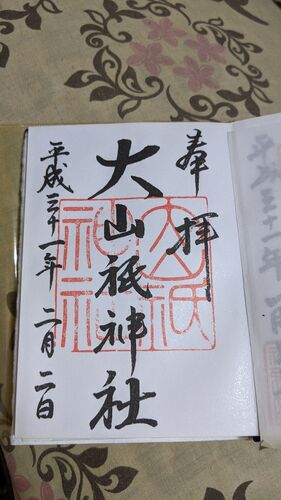 奉拝
大山祇神社
平成三十一年二月二日
大山祇
神社
平成三十一年